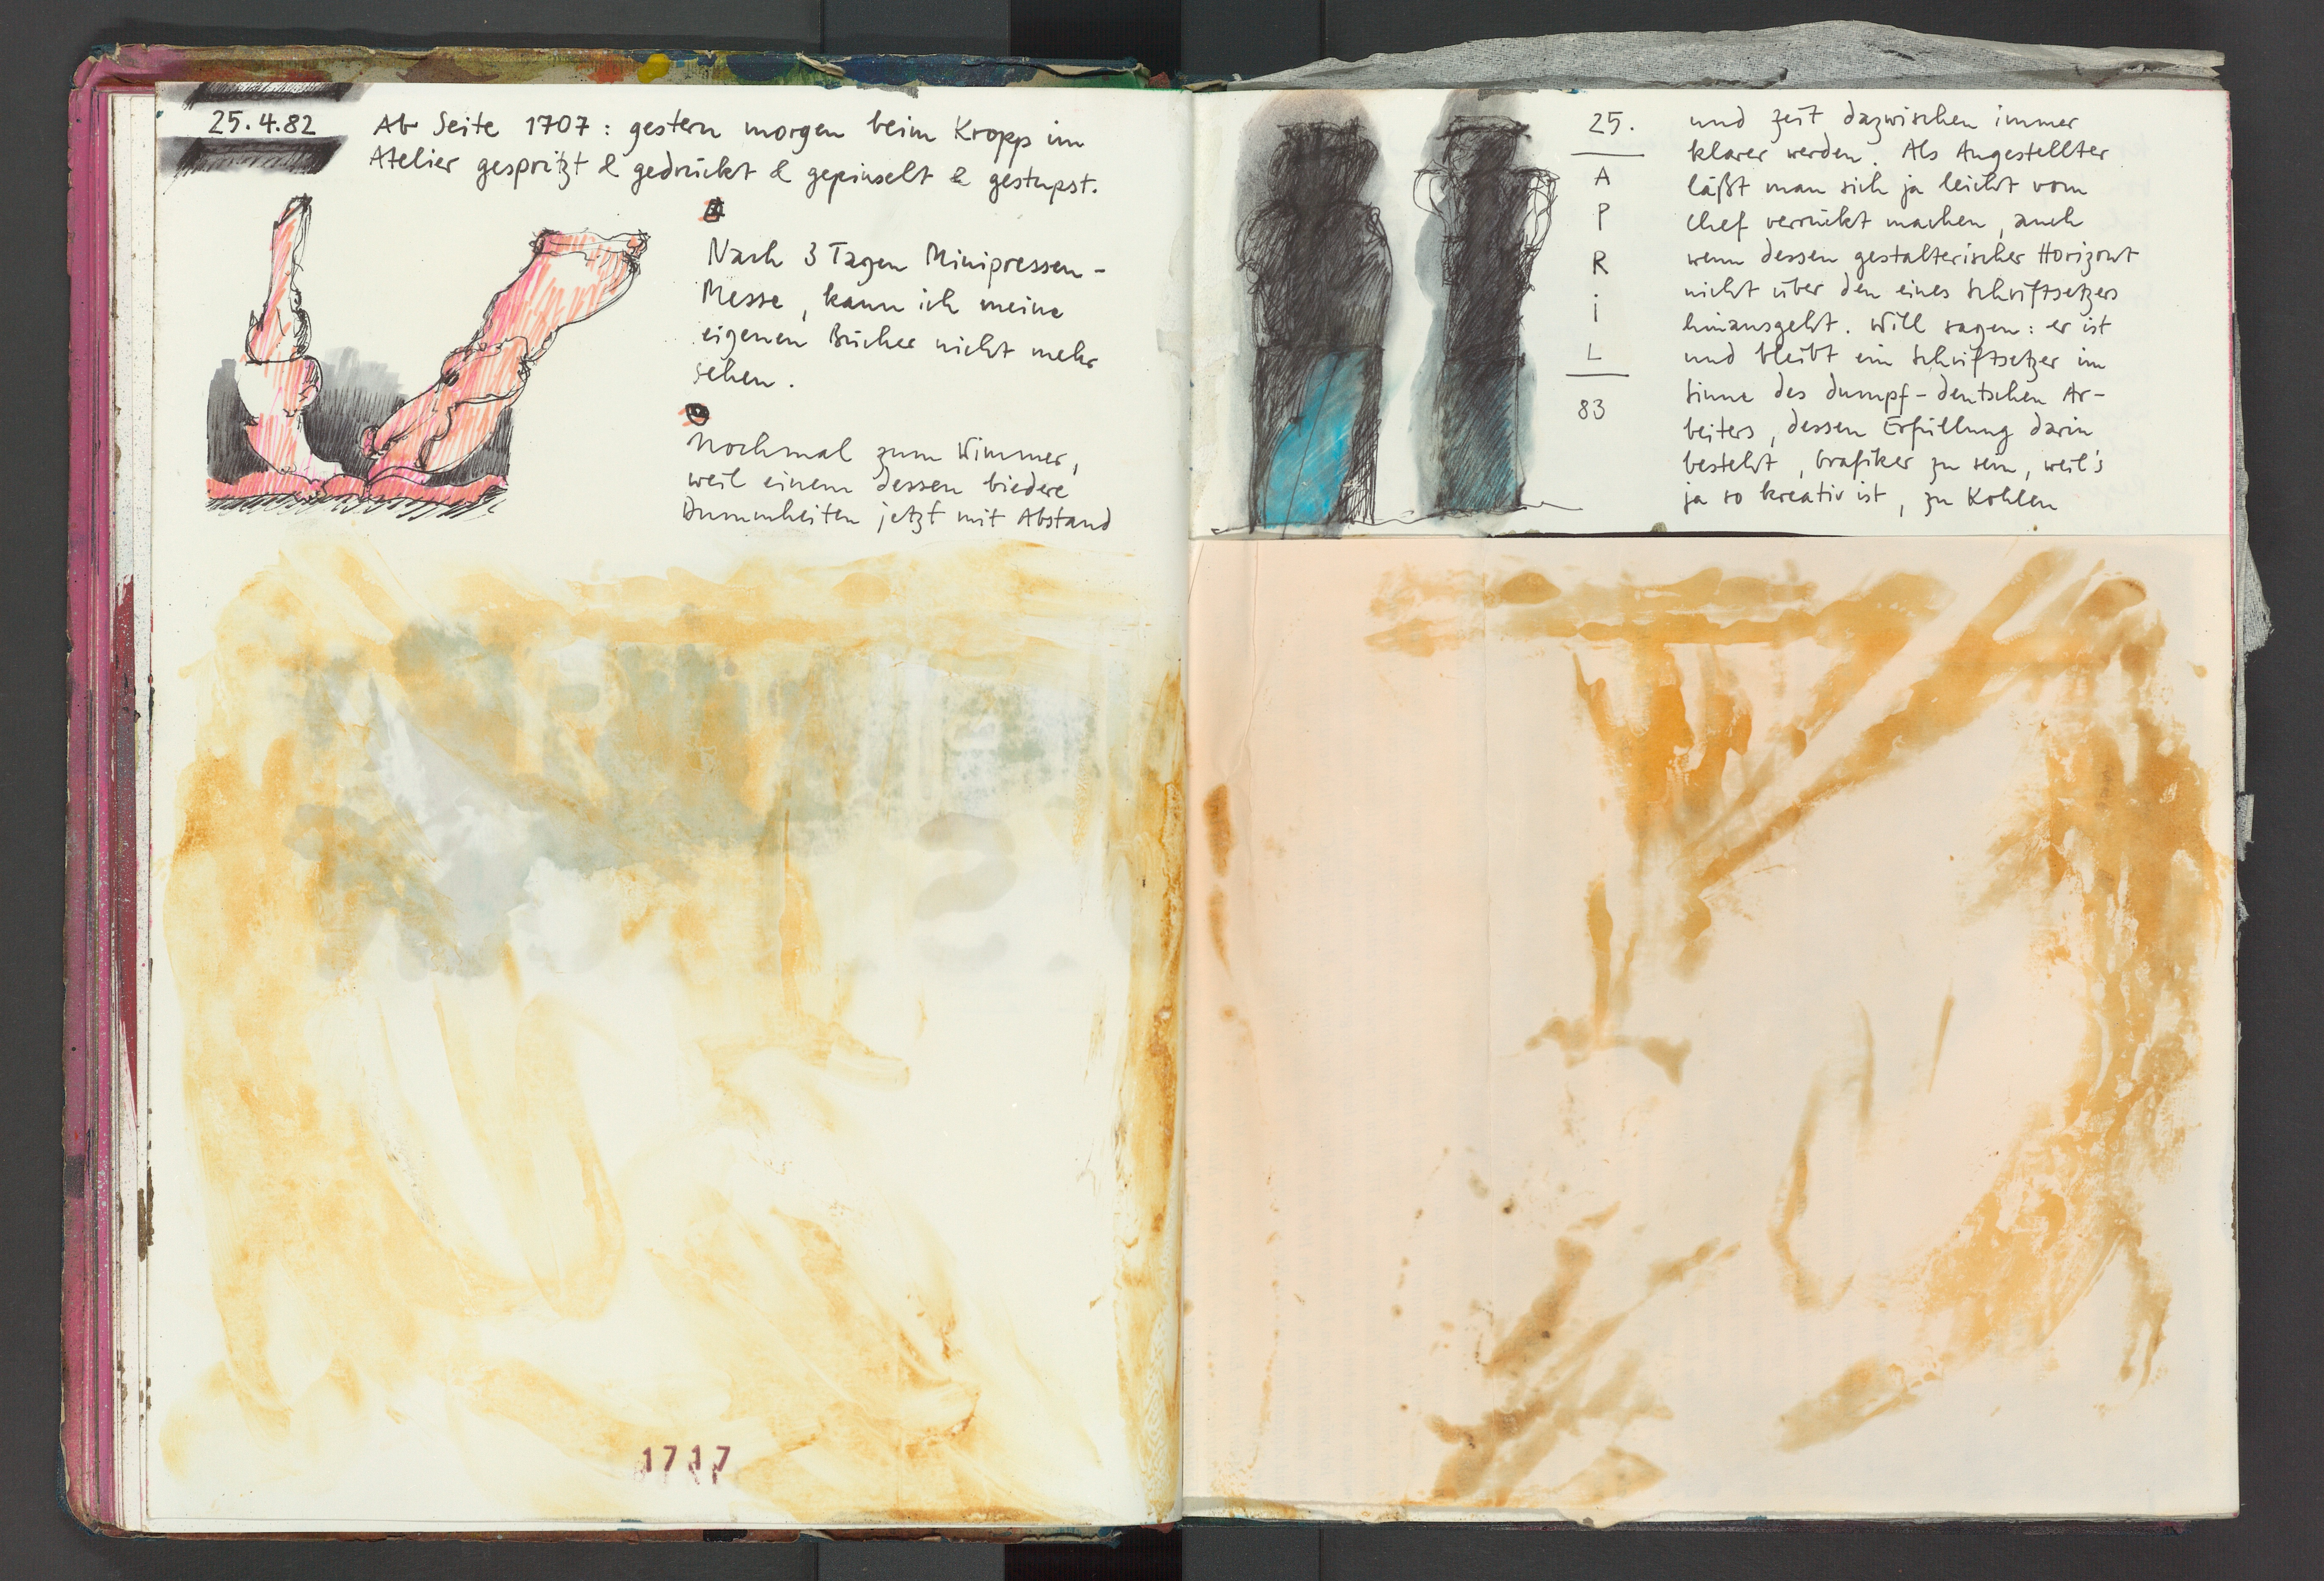 25.4.82
Ab Seite 1707 : gestern morgen beim Kropp im
Atelier gespritzt & gedrückt & gepinselt & gestupst.
Nach 3 Tagen Minipressen-
Messe, kann ich meine
eigenen Bücher nicht mehr
sehen.
Nochmal zum Wimmer,
weil einem dessen biedere
Dummheiten jetzt mit Abstand
1717
25.
A
P
R
i
L
83
und Zeit dazwischen immer
klarer werden. Als Angestellter
läßt man sich ja leicht vom
Chef verrückt machen, auch
wenn dessen gestalterischer Horizont
nicht über den eines Schriftsetzers
hinausgeht. Will sagen: er ist
und bleibt ein Schriftsetzer im
Sinne des dumpf-deutschen Ar-
beiters, dessen Erfüllung darin
besteht, Grafiker zu sein, weil's
ja so kreativ ist, zu Kohlen